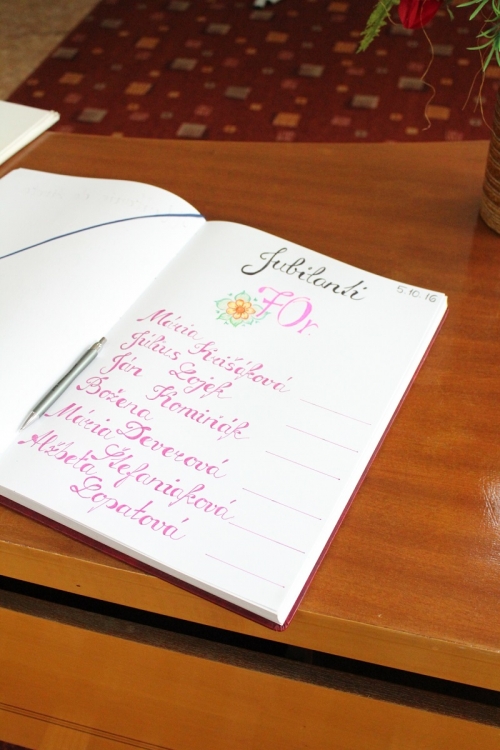 Jubilanti
5.10.16
70r.
Mária Krišáková
Július Lojek
Ján Kominák
Božena Deverová
Mária Štefaniaková
Alžbeta Lopatová